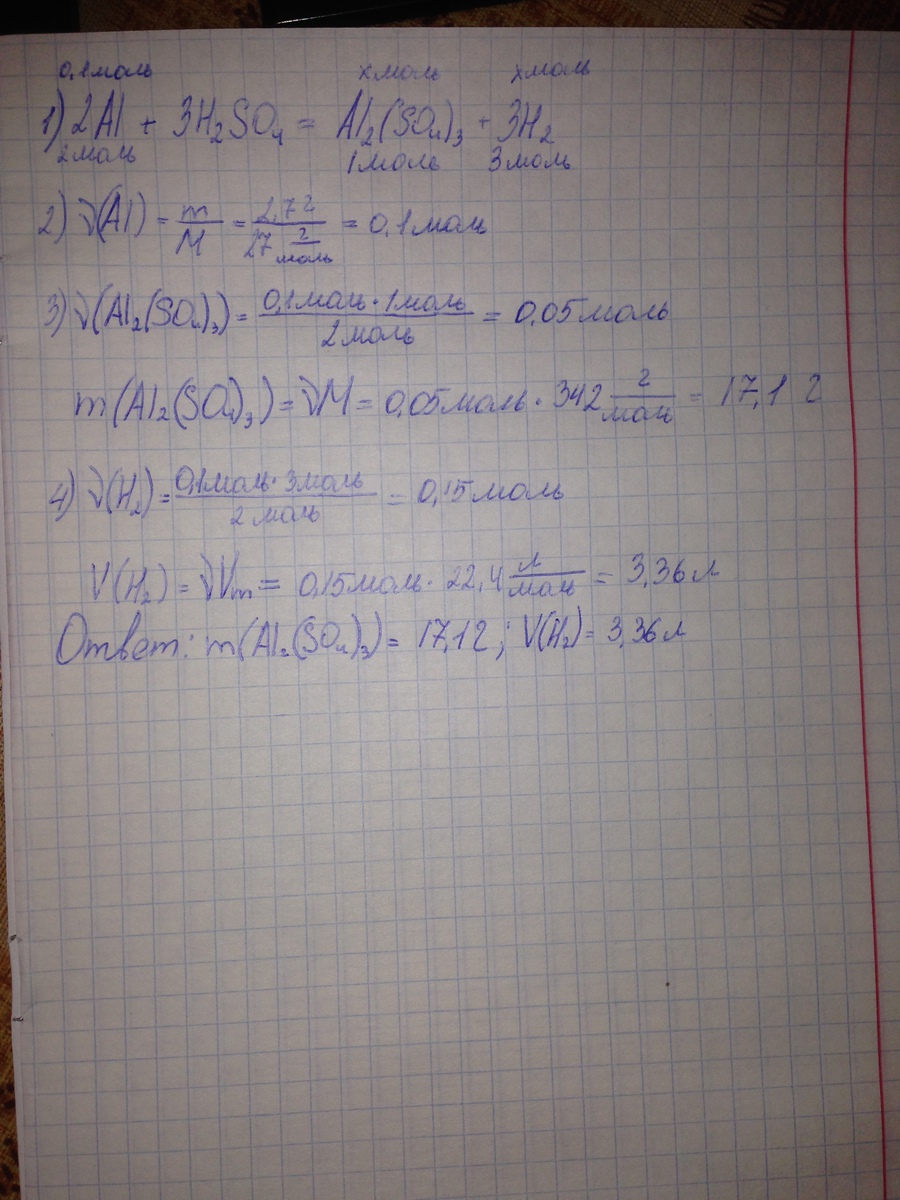 0,1моль хмоль хмоль
1) 2Al + 3H₂SO₄ = Al₂(SO₄)₃ + 3H₂
2моль 1моль 3моль
2) ν(Al) = m/M = 2,7г/27 г/моль = 0,1моль
3) ν(Al₂(SO₄)₃) = 0,1моль · 1моль/2моль = 0,05моль
m(Al₂(SO₄)₃) = νM = 0,05моль · 342 г/моль = 17,1 г
4) ν(H₂) = 0,1моль · 3моль/2 моль = 0,15моль
V(H₂) = νVm = 0,15моль · 22,4 л/моль = 3,36л
Ответ: m(Al₂(SO₄)₃) = 17,1г; V(H₂) = 3,36л